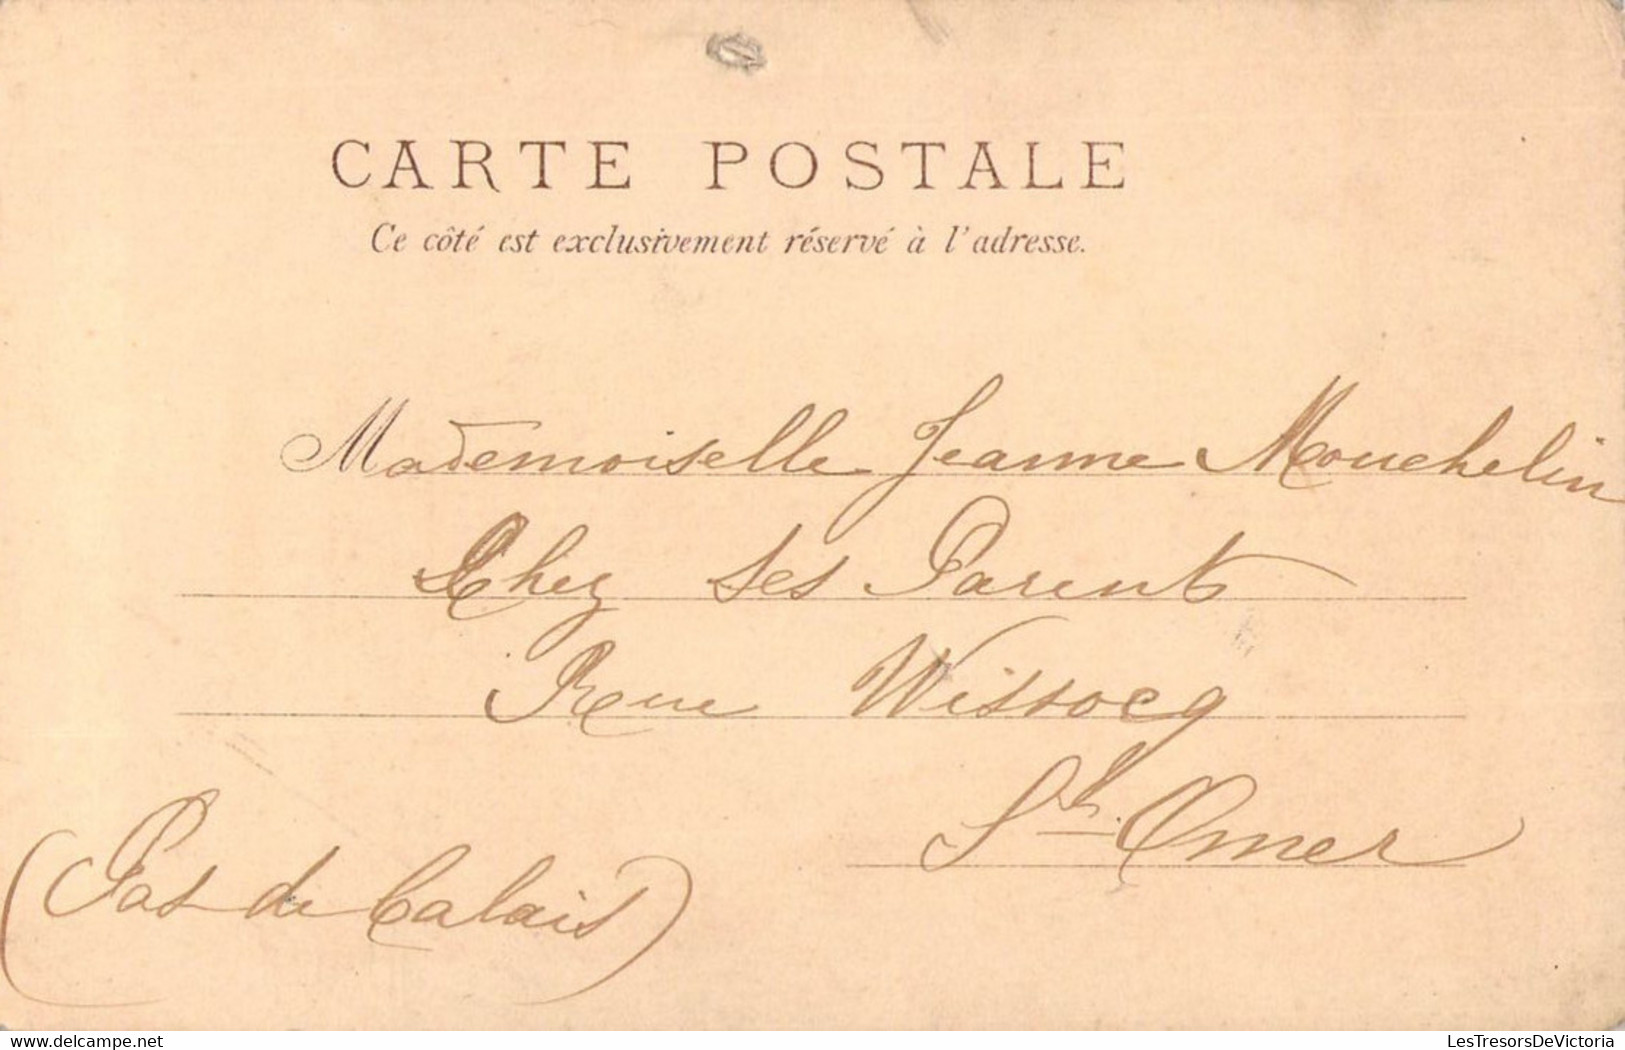 CARTE POSTALE
Ce côté est exclusivement réservé à l'adresse.
Mademoiselle Jeanne Mouchelin
Chez Ses Parents
Rue Wissocq
St. Omer
(Pas de Calais)
www.delcampe.net
LesTresorsDeVictoria